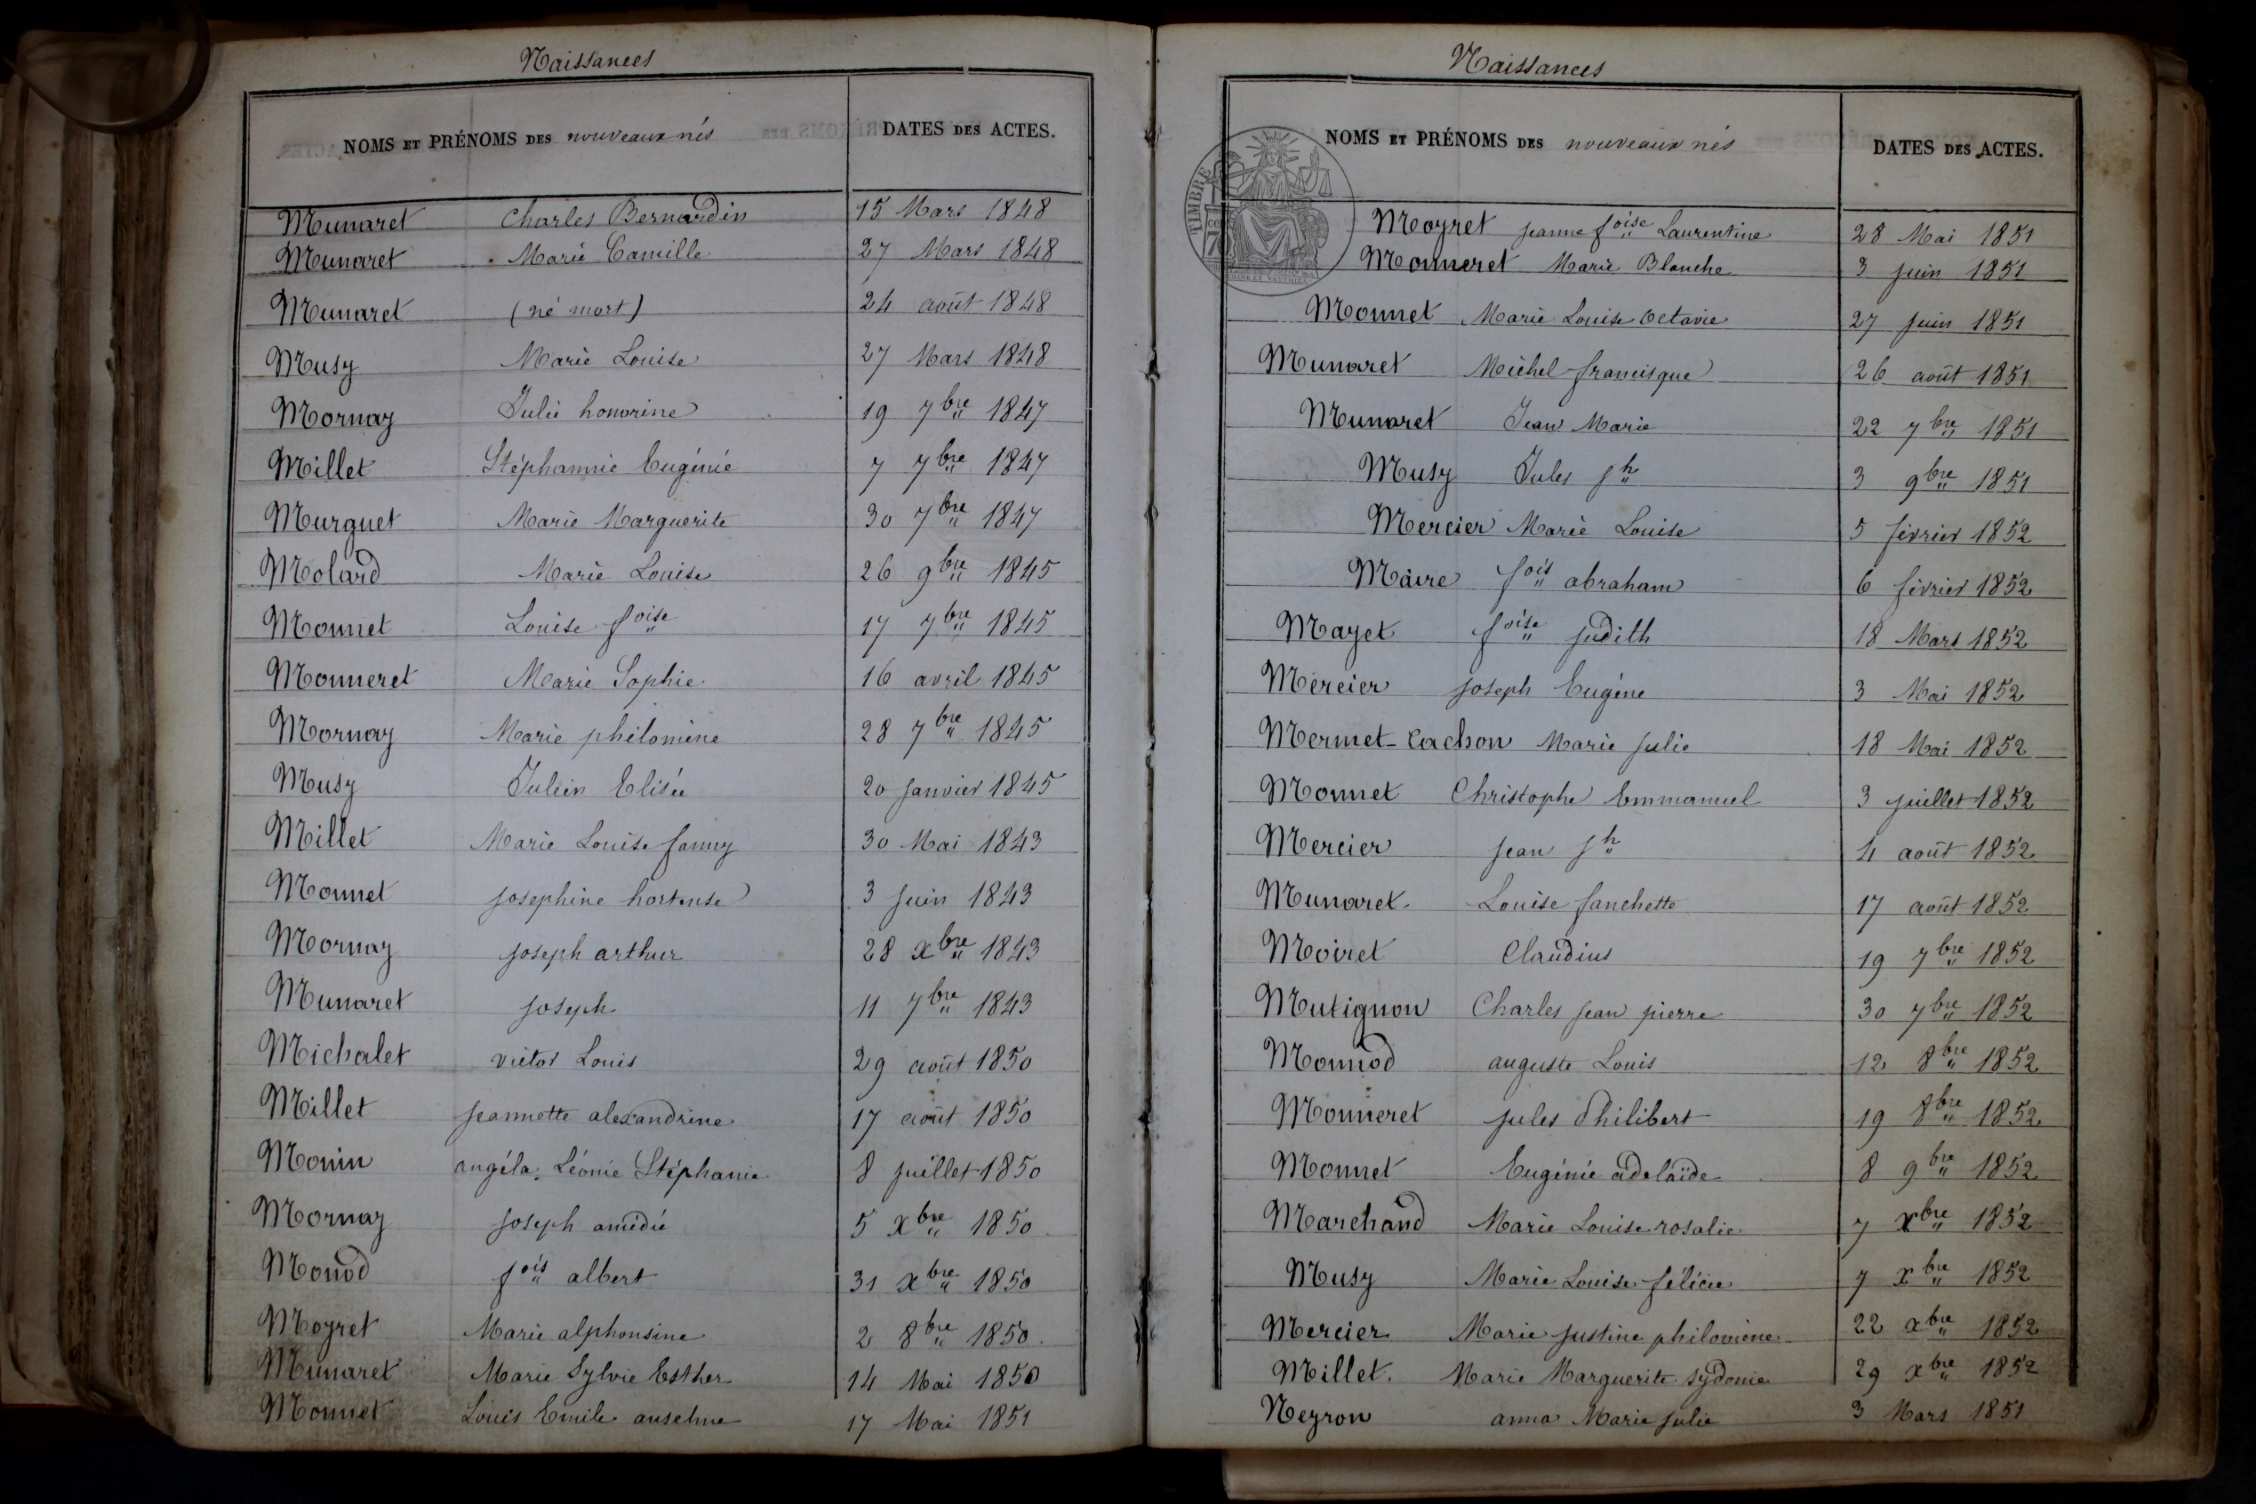 Naissances
NOMS ET PRÉNOMS DES nouveaux nés DATES DES ACTES.
Munaret Charles Bernardin 15 Mars 1848
Munaret Marie Camille 27 Mars 1848
Munaret (né mort) 24 août 1848
Musy Marie Louise 27 Mars 1848
Mornay Julie honorine 19 7bre 1847
Millet Stéphannie Eugénie 7 7bre 1847
Murguet Marie Marguerite 30 7bre 1847
Molard Marie Louise 26 9bre 1845
Monnet Louise foise 17 7bre 1845
Monneret Marie Sophie 16 avril 1845
Mornay Marie philomène 28 7bre 1845
Musy Julien Elisée 20 Janvier 1845
Millet Marie Louise fanny 30 Mai 1843
Monnet Josephine hortense 3 Juin 1843
Mornay Joseph arthur 28 xbre 1843
Munaret Joseph 11 7bre 1843
Michalet victor Louis 29 août 1850
Millet Jeannette alexandrine 17 août 1850
Monin angéla Léonie Stéphanie 8 juillet 1850
Mornay Joseph amédée 5 xbre 1850
Monod fois albert 31 xbre 1850
Moyret Marie alphonsine 2 8bre 1850
Munaret Marie Sylvie Esther 14 Mai 1850
Monnet Louis Emile anselme 17 Mai 1851
Naissances
NOMS ET PRÉNOMS DES nouveaux nés DATES DES ACTES.
TIMBRE
Moyret Jeanne foise Laurentine 28 Mai 1851
Monneret Marie Blanche 3 juin 1851
Monnet Marie Louise Octavie 27 Juin 1851
Munaret Michel francisque 26 août 1851
Munaret Jean Marie 22 7bre 1851
Musy Jules Jh 3 9bre 1851
Mercier Marie Louise 5 février 1852
Maire fois abraham 6 février 1852
Mayet foise judith 18 Mars 1852
Mercier Joseph Eugène 3 Mai 1852
Mermet-Cachon Marie Julie 18 Mai 1852
Monnet Christophe Emmanuel 3 juillet 1852
Mercier Jean Jh 4 août 1852
Munaret Louise fanchette 17 août 1852
Moiret Claudius 19 7bre 1852
Mutignon Charles Jean pierre 30 7bre 1852
Monnod auguste Louis 12 8bre 1852
Monneret jules Philibert 19 8bre 1852
Monnet Eugénie adelaïde 8 9bre 1852
Marchand Marie Louise rosalie 7 xbre 1852
Musy Marie Louise félicie 7 xbre 1852
Mercier Marie justine philomène 22 xbre 1852
Millet Marie Marguerite sydonie 29 xbre 1852
Neyron anna Marie Julie 3 Mars 1851